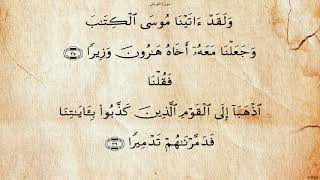 سورة الفرقان
وَلَقَدْ ءَاتَيْنَا مُوسَى ٱلْكِتَٰبَ
وَجَعَلْنَا مَعَهُۥٓ أَخَاهُ هَٰرُونَ وَزِيرًا ۝٣٥
فَقُلْنَا
ٱذْهَبَآ إِلَى ٱلْقَوْمِ ٱلَّذِينَ كَذَّبُوا۟ بِـَٔايَٰتِنَا
فَدَمَّرْنَٰهُمْ تَدْمِيرًا ۝٣٦